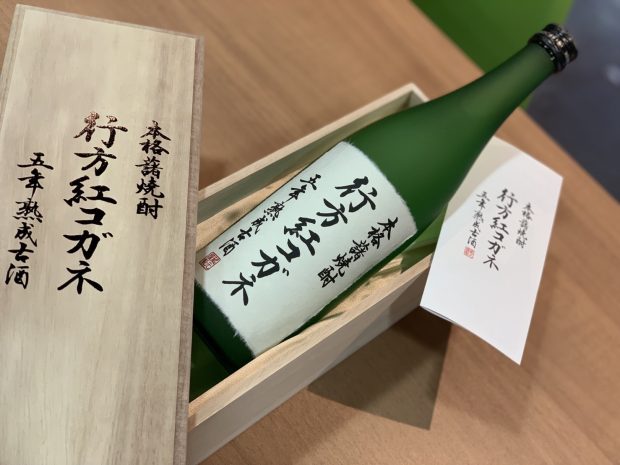 本格藷焼酎
行方紅コガネ
五年熟成古酒
本格藷焼酎
行方紅コガネ
五年熟成古酒
本格藷焼酎
行方紅コガネ
五年熟成古酒